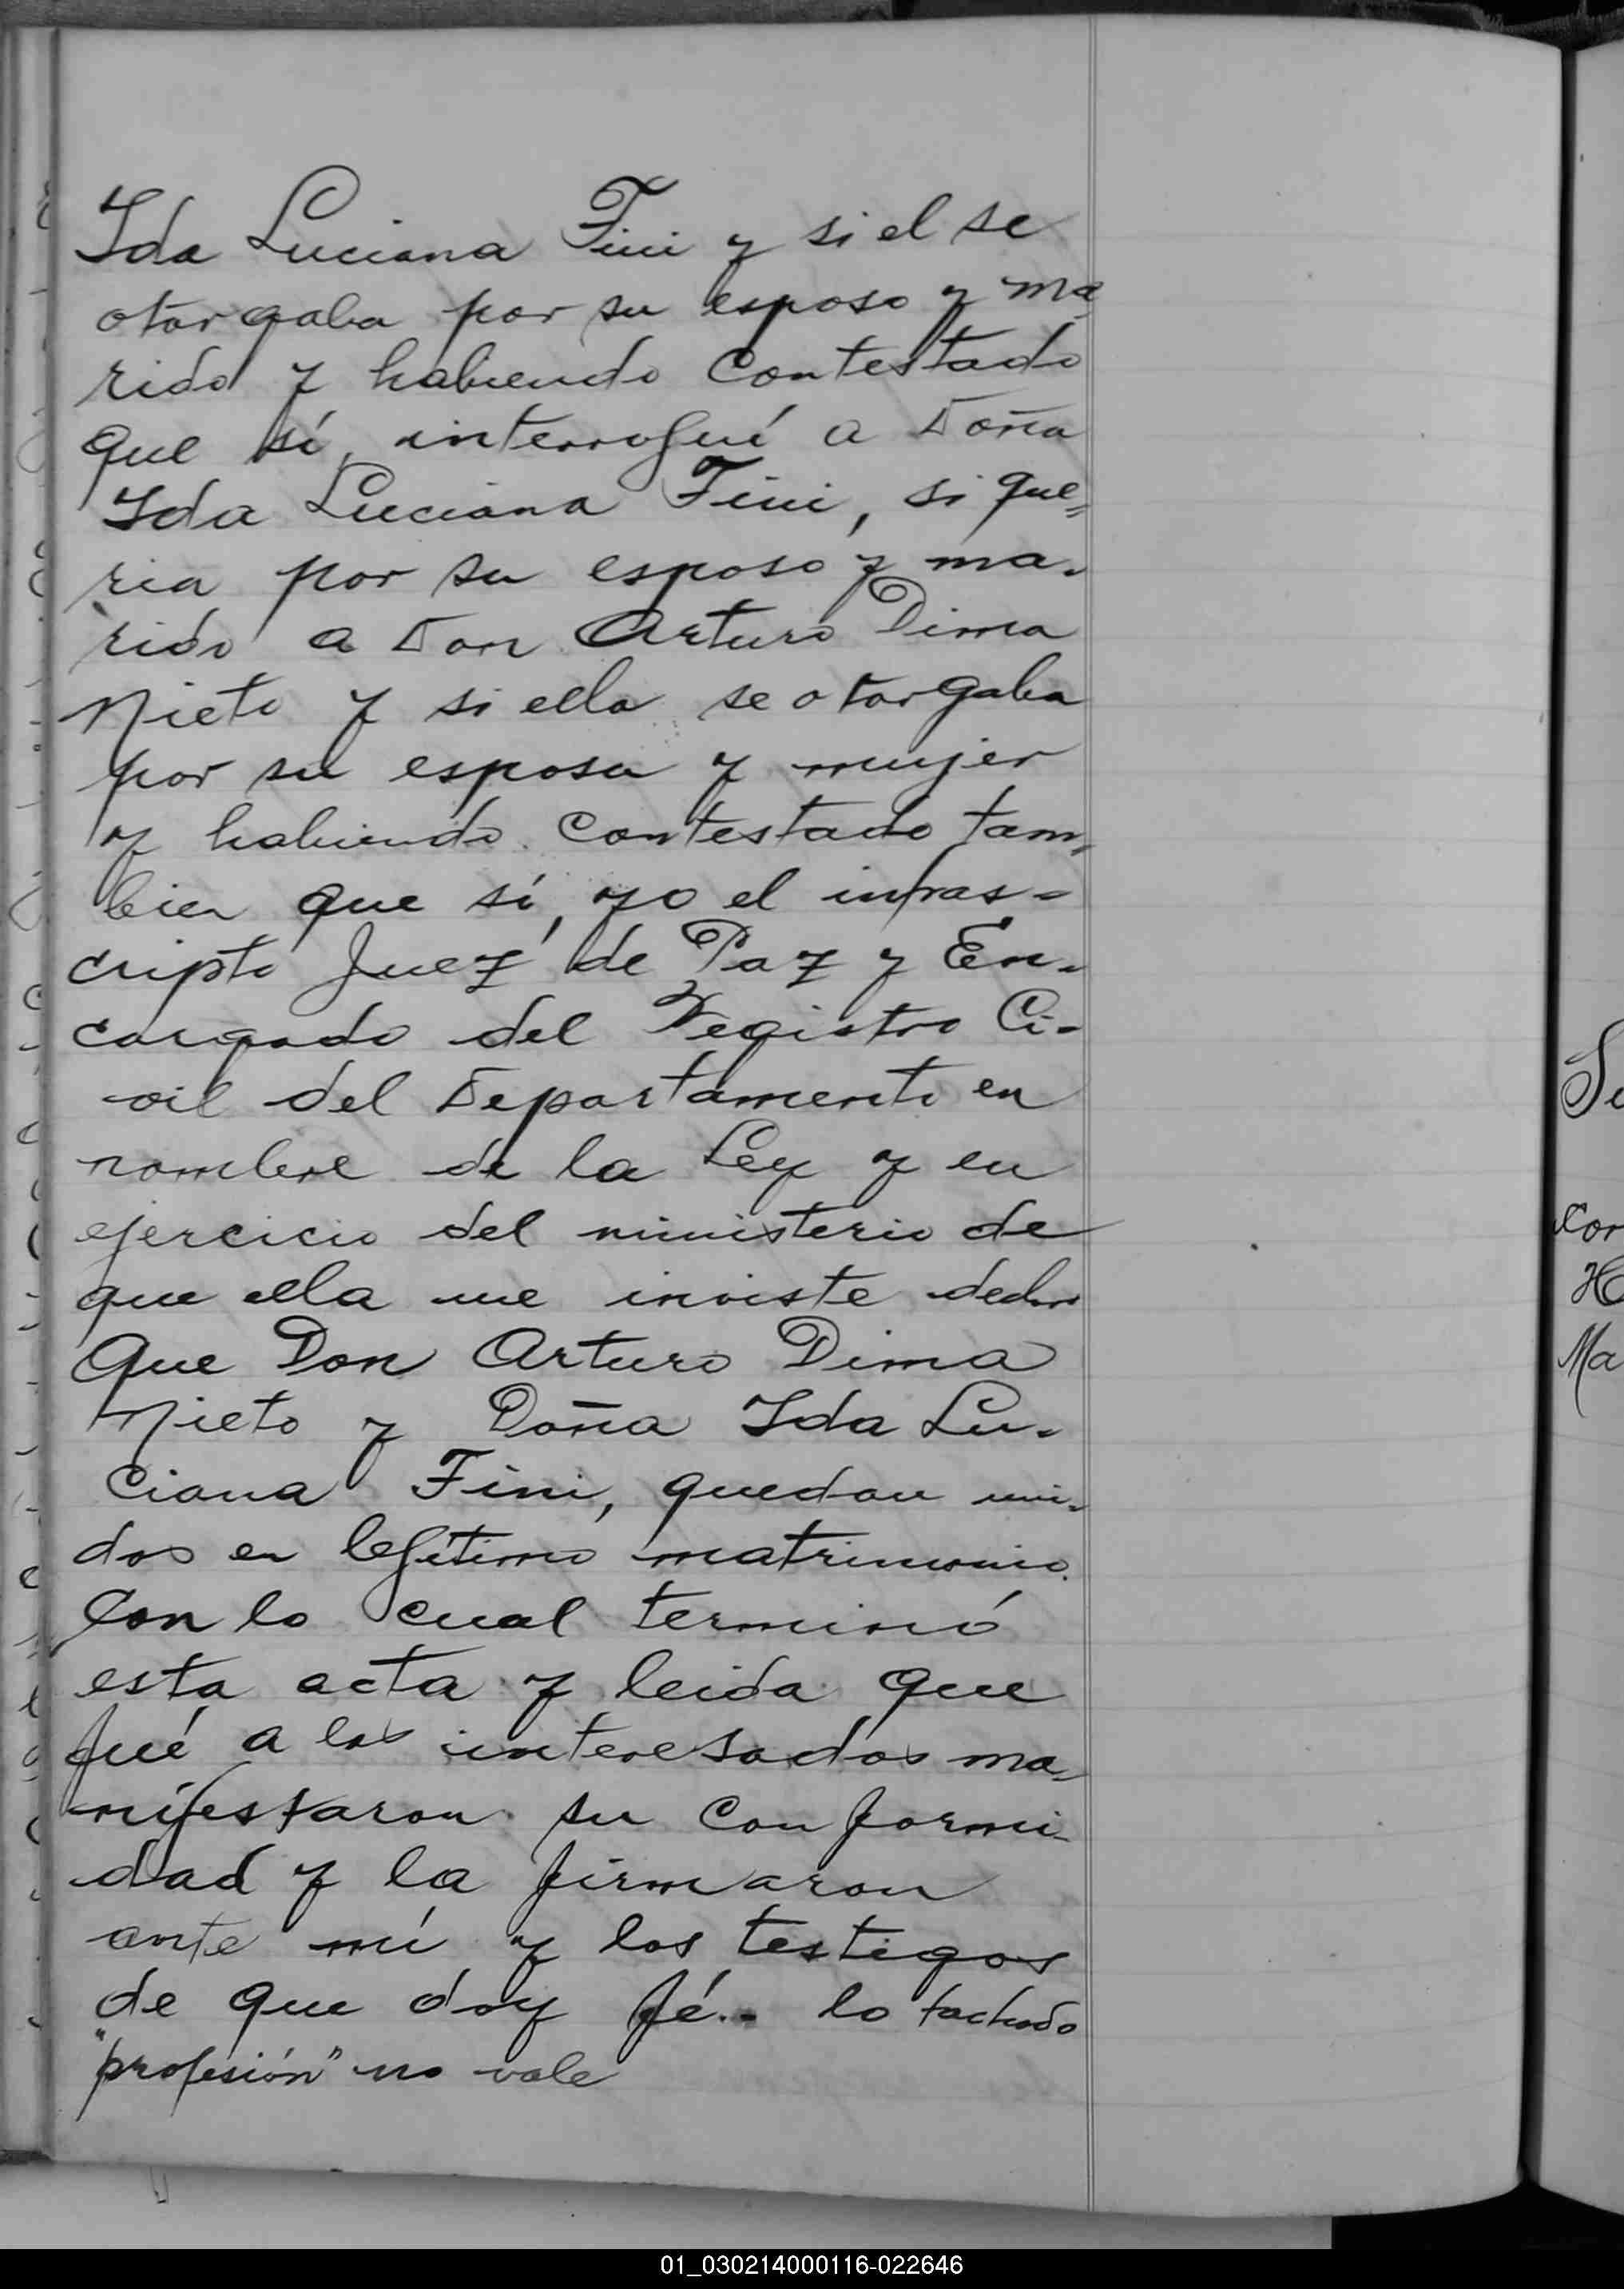 Ida Luciana Fini y si el se
otorgaba por su esposo y ma-
rido y habiendo contestado
que sí, interrogué a Doña
Ida Luciana Fini, si que=
ria por su esposo y ma-
rido a Don Arturo Dima
Nieto y si ella se otorgaba
por su esposa y mujer
y habiendo contestado tam-
bien que sí, yo el infras-
cripto Juez de Paz y En-
cargado del Registro Ci-
vil del Departamento en
nombre de la Ley y en
ejercicio del ministerio de
que ella me inviste declaro
Que Don Arturo Dima
Nieto y Doña Ida Lu-
ciana Fini, quedan uni-
dos en legítimo matrimonio.
Con lo cual terminó
esta acta y leida que
fué a los interesados ma-
nifestaron su conformi-
dad y la firmaron
ante mí y los testigos
de que doy fé.- lo tachado
"profesión" no vale
Se
Cor
H
Ma
01_030214000116-022646